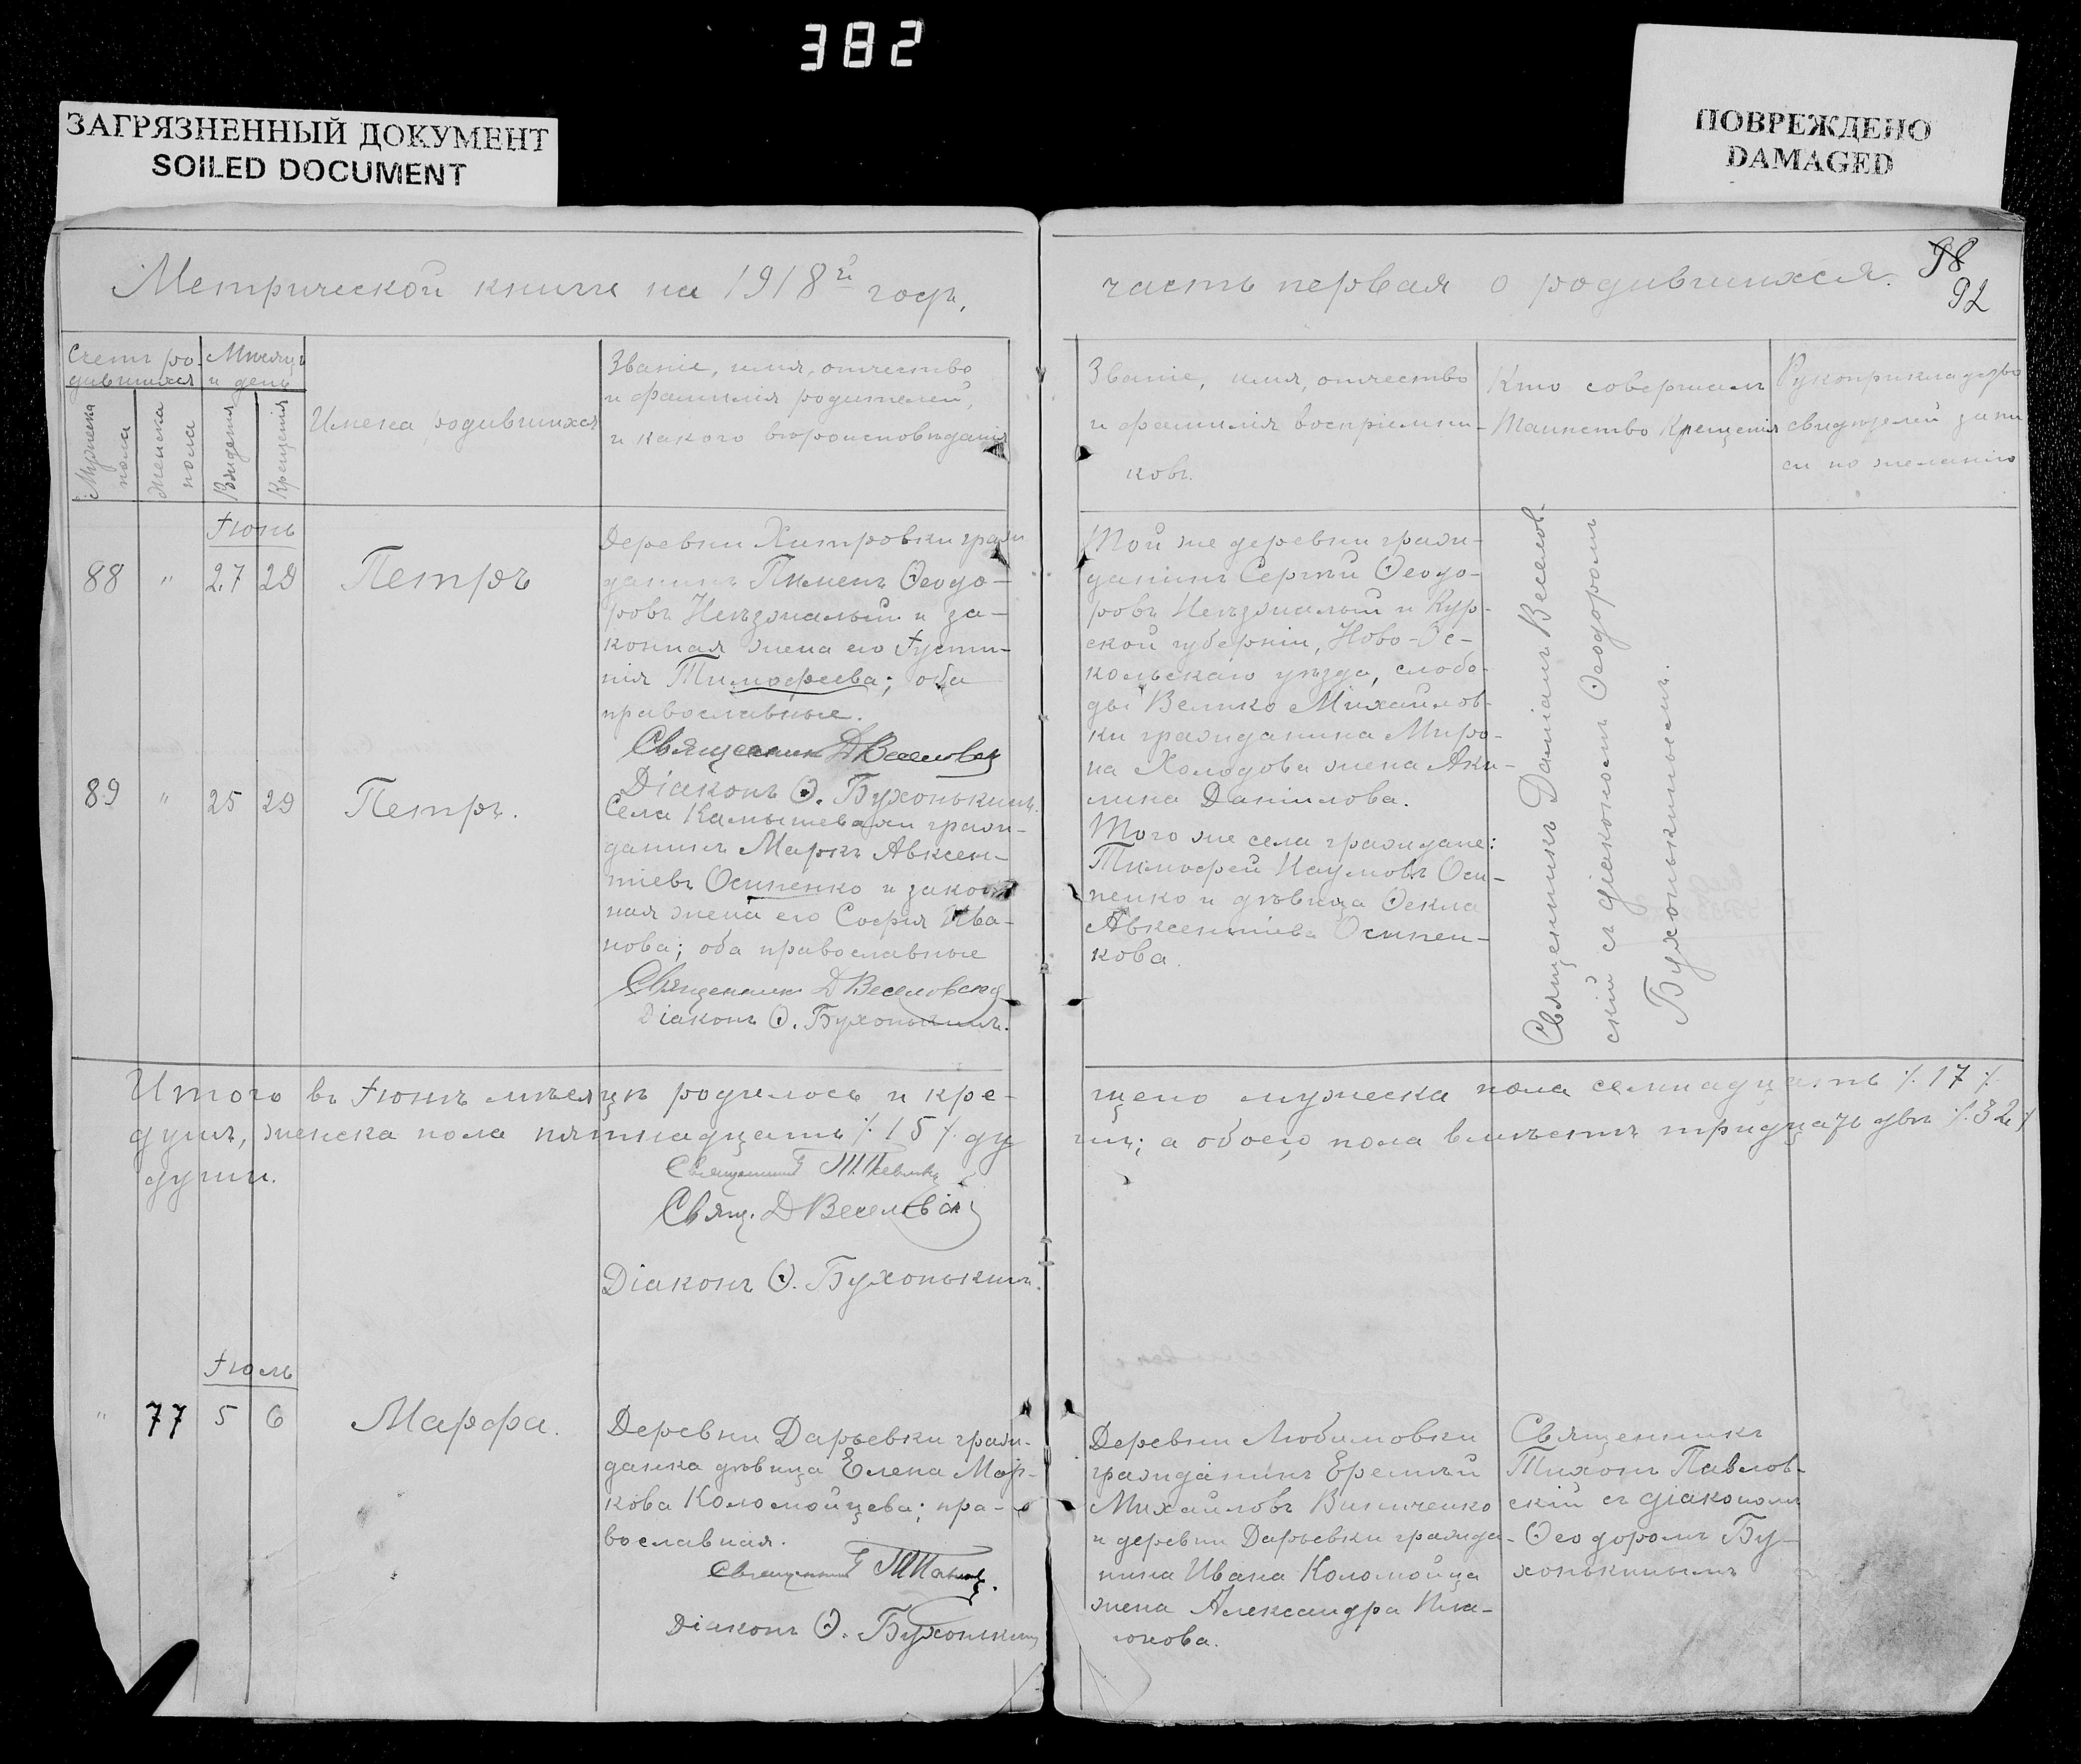 382
ЗАГРЯЗНЕННЫЙ ДОКУМЕНТ
SOILED DOCUMENT
ПОВРЕЖДЕНО
DAMAGED
Метрической книги на 1918й годъ,
часть первая о родившихся.
98
92
Счетъ ро-
дившихся
Мѣсяцъ
и день
Мужеска
пола
Женска
пола
Рожденія
Крещенія
Имена родившихся
Званіе, имя, отчество
и фамилія родителей,
и какого вѣроисповѣданія
Званіе, имя, отчество
и фамилія воспріемни-
ковъ.
Кто совершалъ
Таинство Крещенія
Рукоприкладство
свидѣтелей запи
си по желанію
Іюнь
88 " 27 29 Петръ
Деревни Хитровки граж
данинъ Пименъ Ѳеодо-
ровъ Неѣзжалый и за-
конная жена его Іусти-
нія Тимофеева; оба
православные.
Священник Д Веселовскій
Діаконъ Ѳ. Бухонькинъ.
Той же деревни граж-
данинъ Сергѣй Ѳеодо-
ровъ Неѣзжалый и Кур-
ской губерніи, Ново-Ос-
кольскаго уѣзда, слобо-
ды Велико Михайлов-
ки гражданина Миро-
на Холодова жена Аки-
лина Данилова.
89 " 25 29 Петръ.
Села Камышевахи граж-
данинъ Маркъ Авксен-
тіевъ Осипенко и закон
ная жена его Софія Ива-
нова; оба православные
Священник Д Веселовскій
Діаконъ Ѳ. Бухонькинъ.
Того же села граждане:
Тимофей Наумовъ Оси-
пенко и дѣвица Ѳекла
Авксентіева Осипен-
кова.
Священникъ Даніилъ Веселов-
скій съ діакономъ Ѳеодоромъ
Бухонькинымъ.
Итого въ Іюнѣ мѣсяцѣ родилось и кре-
щено мужеска пола семнадцать ٪ 17 ٪
душъ, женска пола пятнадцать ٪ 15 ٪ ду
шъ; а обоего пола вмѣстѣ тридцать двѣ ٪ 32 ٪
души.
Священникъ Т. Павловскій
Свящ. Д Веселовскій
Діаконъ Ѳ. Бухонькинъ.
Іюль
" 77 5 6 Марфа.
Деревни Дарьевки граж-
данка дѣвица Елена Мар-
кова Коломойцева; пра-
вославная.
Священникъ Т Павловскій
Діаконъ Ѳ. Бухонькинъ
Деревни Любимовки
гражданинъ Еремѣй
Михайловъ Винниченко
и деревни Дарьевки гражда-
нина Ивана Коломойца
жена Александра
Священникъ
Тихонъ Павлов-
скій съ діакономъ
Ѳеодоромъ Бу-
хонькинымъ